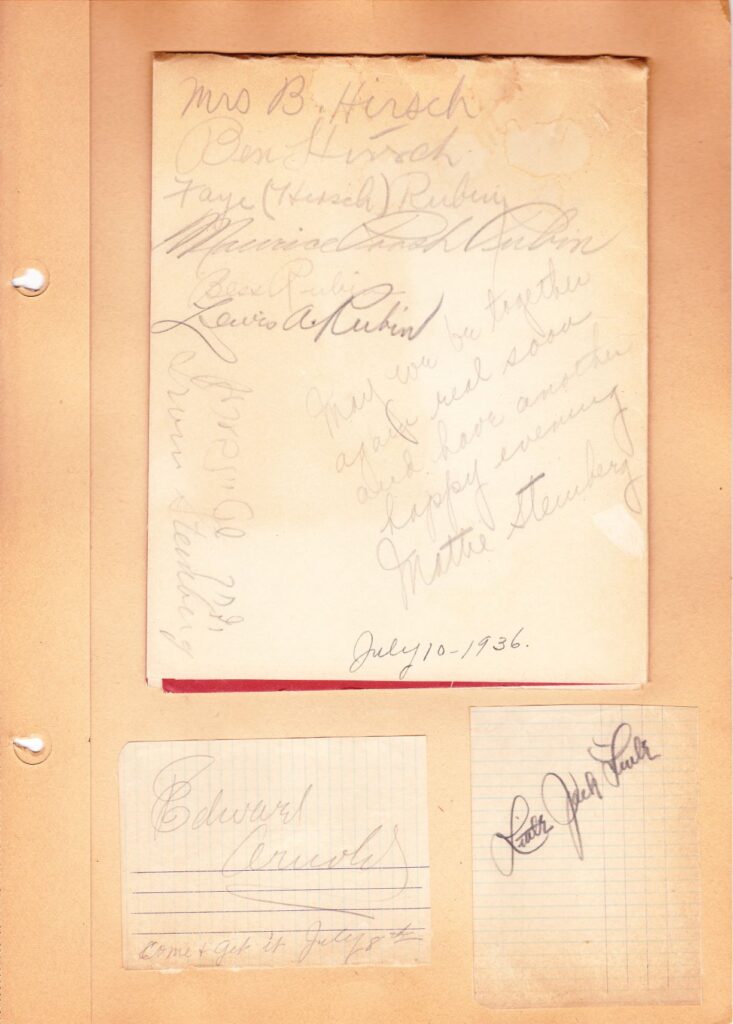 Mrs B. Hirsch
Ben Hirsch
Faye (Hirsch) Rubin
Maurice Rubin
Bess Rubin
Lewis A. Rubin
May we be together
again real soon
and have another
happy evening
Mattie Steinberg
Irvin Steinberg
July 10-1936.
Edward
Arnold
Come & Get it July 8th
Little Jack Little